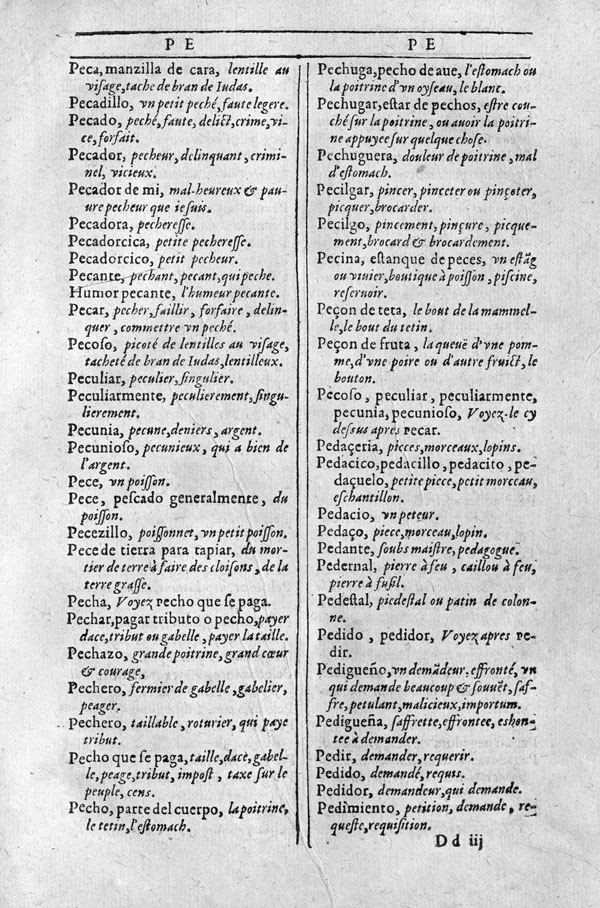 P E
Peca, manzilla de cara, lentille au
viſage, tache de bran de Iudas.
Pecadillo, vn petit peché, faute legere.
Pecado, peché, faute, delict, crime, vi-
ce, forfait.
Pecador, pecheur, delinquant, crimi-
nel, vicieux.
Pecador de mi, mal-heureux & pau-
ure pecheur que ie ſuis.
Pecadora, pechereſſe.
Pecadorcica, petite pechereſſe.
Pecadorcico, petit pecheur.
Pecante, pechant, pecant, qui peche.
Humor pecante, l'humeur pecante.
Pecar, pecher, faillir, forfaire, delin-
quer, commettre vn peché.
Pecoſo, picoté de lentilles au viſage,
tacheté de bran de Iudas, lentilleux.
Peculiar, peculier, ſingulier.
Peculiarmente, peculierement, ſingu-
lierement.
Pecunia, pecune, deniers, argent.
Pecunioſo, pecunieux, qui a bien de
l'argent.
Pece, vn poiſſon.
Pece, peſcado generalmente, du
poiſſon.
Pecezillo, poiſſonnet, vn petit poiſſon.
Pece de tierra para tapiar, du mor-
tier de terre à faire des cloiſons, de la
terre graſſe.
Pecha, Voyez Pecho que ſe paga.
Pechar, pagar tributo o pecho, payer
dace, tribut ou gabelle, payer la taille.
Pechazo, grande poitrine, grand cœur
& courage,
Pechero, fermier de gabelle, gabelier,
peager.
Pechero, taillable, roturier, qui paye
tribut.
Pecho que ſe paga, taille, dace, gabel-
le, peage, tribut, impoſt, taxe ſur le
peuple, cens.
Pecho, parte del cuerpo, la poitrine,
le tetin, l'eſtomach.
P E
Pechuga, pecho de aue, l'eſtomach ou
la poitrine d'vn oyſeau, le blanc.
Pechugar, eſtar de pechos, eſtre cou-
ché ſur la poitrine, ou auoir la poitri-
ne appuyee ſur quelque choſe.
Pechuguera, douleur de poitrine, mal
d'eſtomach.
Pecilgar, pincer, pinceter ou pinçoter,
picquer, brocarder.
Pecilgo, pincement, pinçure, picque-
ment, brocard & brocardement.
Pecina, eſtanque de peces, vn eſtãg
ou viuier, boutique à poiſſon, piſcine,
reſeruoir.
Peçon de teta, le bout de la mammel-
le, le bout du tetin.
Peçon de fruta, la queuë d'vne pom-
me, d'vne poire ou d'autre fruict, le
bouton.
Pecoſo, peculiar, peculiarmente,
pecunia, pecunioſo, Voyez-le cy
deſſus apres Pecar.
Pedaçeria, pieces, morceaux, lopins.
Pedacico, pedacillo, pedacito, pe-
daçuelo, petite piece, petit morceau,
eſchantillon.
Pedacio, vn peteur.
Pedaço, piece, morceau, lopin.
Pedante, ſoubs maiſtre, pedagogue.
Pedernal, pierre à feu, caillou à feu,
pierre à fuſil.
Pedeſtal, piedeſtal ou patin de colon-
ne.
Pedido, pedidor, Voyez apres Pe-
dir.
Pedigueño, vn demãdeur, effronté, vn
qui demande beaucoup & ſouuẽt, ſaf-
fre, petulant, malicieux, importum.
Pedigueña, ſaffrette, effrontee, eshon-
tee à demander.
Pedir, demander, requerir.
Pedido, demandé, requis.
Pedidor, demandeur, qui demande.
Pedimiento, petition, demande, re-
queſte, requiſition.
D d iij